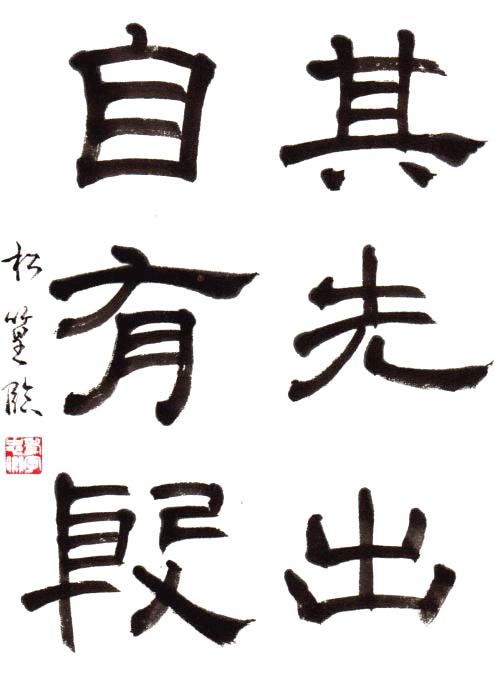 其先出
自有殷
松篁臨